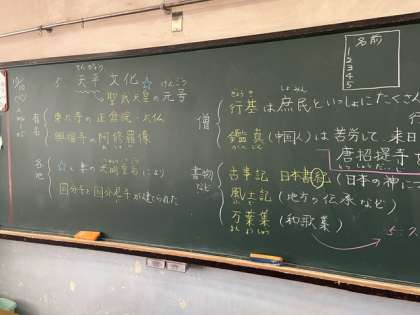 5. 天平文化☆
てんぴょう
聖武天皇の元号
げんごう
有名
東大寺の正倉院・大仏
興福寺の阿修羅像
各地
☆
により
国分寺と国分尼寺が建てられた
僧
行基は庶民といっしょにたくさん
ぎょうき
しょみん
鑑真(中国人)は苦労して来日
唐招提寺
書物など
古事記 日本書紀(日本の神に
風土記(地方の伝承など)
万葉集(和歌集)
まんようしゅう
名前
1
2
3
4
5